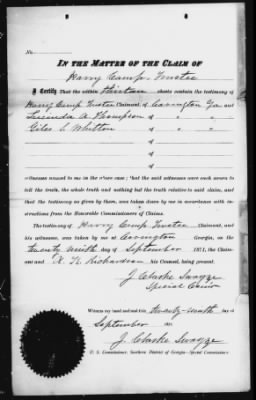 No.
IN THE MATTER OF THE CLAIM OF
Harry Camp, Trustee
I Certify That the within thirteen sheets contain the testimony of
Harry Camp Trustee Claimant, of Covington Ga and
Lucinda A. Thompson of " "
Giles S. Whitton of " "
of
of
of
witnesses named to me in the above case; that the said witnesses were each sworn to
tell the truth, the whole truth and nothing but the truth relative to said claim, and
that the testimony so given by them, was taken down by me in accordance with in-
structions from the Honorable Commissioners of Claims.
The testimony of Harry Camp Trustee Claimant, and
his witnesses, was taken by me at Covington Georgia, on the
twenty ninth day of September 1871, the Claim-
ant and K. K. Richardson his Counsel, being present.
J. Clarke Swayze
Special Com'r
Witness my hand and seal this twenty-ninth day of
September 1871
J. Clarke Swayze
U. S. Commissioner, Southern District of Georgia—Special Commissioner